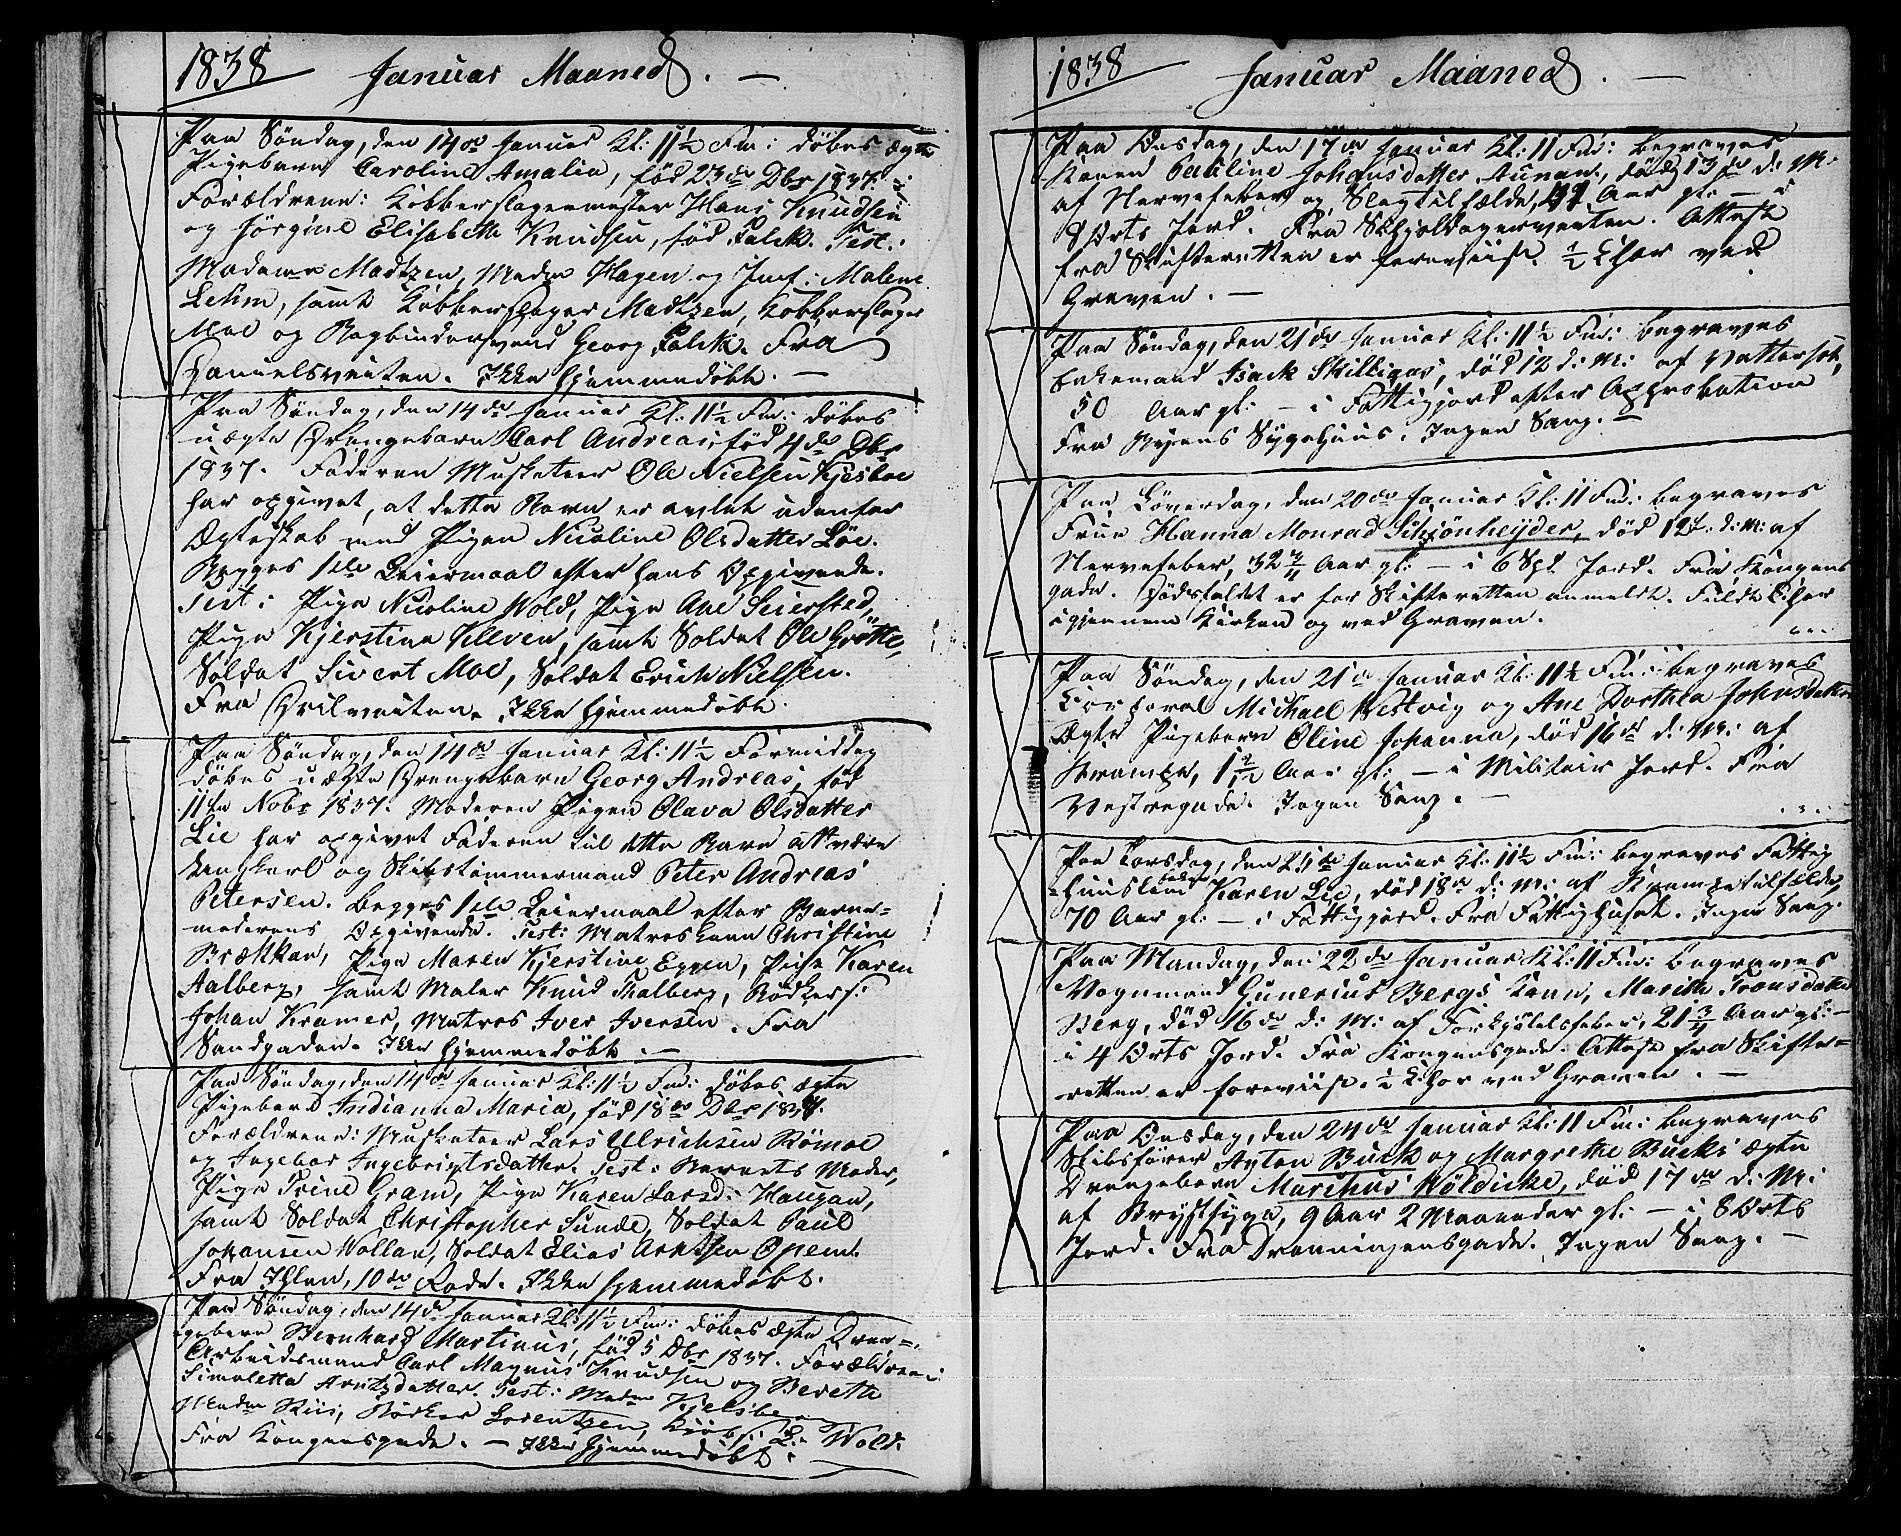 1838 Januar Maaned. —
Paa Søndag, den 14de Januar Kl: 11½ Fm: døbes ægte
Pigebarn Caroline Amalia, født 23de Dbr 1837.
Forældrene: Kobberslagermester Hans Knudsen
og Jørgine Elisabeth Knudsen, fød Falck. Test:
Madame Madtzen, Madm Hagen og Jmf: Malene
Lehm, samt Kobberslager Madtzen, Kobberslager
Moe og Bogbindersvend Georg Falck. Fra
Danielsveiten. Ikke hjemmedøbt. —
Paa Søndag, den 14de Januar Kl: 11½ Fm: døbes
uægte Drengebarn Carl Andreas, fød 4de Dbr
1837. Faderen Musketeer Ole Nielsen Kjesboe
har opgivet, at dette Barn er avlet udenfor
Ægteskab med Pigen Nicoline Olsdatter Löe.
Begges 1ste Leiermaal efter hans Opgivende.
Test: Pige Nicoline Wold, Pige Ane Seiersted,
Pige Kjerstina Kleven, samt Soldat Ole Grötte,
Soldat Sivert Moe, Soldat Erich Nielsen.
Fra Hvilveiten. Ikke hjemmedøbt.
Paa Søndag, den 14de Januar Kl: 11½ Formiddag
døbes uægte Drengebarn Georg Andreas, fød
11te Nobr 1837. Moderen Pigen Olava Olsdatter
Lie har opgivet Faderen til dette Barn att være
Ungkarl og Skibstømmermand Peter Andreas
Petersen. Begges 1ste Leiermaal efter Barne-
moderens Opgivende. Test: Matroskone Christine
Brækkan, Pige Maren Kjerstine Eggen, Pige Karen
Aalberg, samt Maler Knud Thalberg, Bødkers:
Johan Kramer, Matros Iver Iversen. Fra
Sandgaden. Ikke hjemmedøbt. —
Paa Søndag, den 14de Januar Kl: 11½ Fm: døbes ægte
Pigebarn Indianna Maria, fød 18de Dbr 1837.
Forældrene: Musketeer Lars Ulrichsen Römoe
og Ingebor Ingebrigtsdatter. Test: Barnets Moder,
Pige Trine Gram, Pige Karen Larsd: Haugan,
samt Soldat Christopher Sunde, Soldat Paul
Johansen Wollan, Soldat Elias Arntsen Opem.
Fra Ihlen, 10de Rode. Ikke hjemmedøbt.
Paa Søndag, den 14de Januar Kl: 11½ Fm: døbes ægte Dren-
gebarn Bernhard Martinus, fød 5 Dbr 1837. Forældrene:
Arbeidsmand Carl Magnus Knudsen og Bereth
Simoletta Arntzdatter. Test: Madm Kjelsberg
Madm Riis, Bødker Lorentzen, Kjøbm: L: Wold.
Fra Kongensgade. — Ikke hjemmedøbt.
1838 Januar Maaned. —
Paa Onsdag, den 17de Januar Kl: 11 Fm: begraves
Konen Pauline Johansdatter Aunan, død 13de d: M:
af Nervefeber og Slagtilfælde, 41 Aar gl: — i
8 Orts Jord. Fra Skjoldagerveiten. Attest
fra Skifteretten er foreviist. ½ Chor ved
Graven. —
Paa Søndag, den 21de Januar Kl: 11½ Fm: begraves
Enkemand Isack Skilligas, død 12 d: M: af Vattersot,
50 Aar gl: — i Fattigjord efter Approbation
Fra Byens Sygehuus. Ingen Sang. —
Paa Løverdag, den 20de Januar Kl: 11 Fm: begraves
Frue Hanna Monrad Schjönheyder, død 12te d: M: af
Nervefeber, 32¾ Aar gl: — i 6 Spd Jord. Fra Kongens
gade. Dødsfaldet er for Skifteretten anmeldt. Fuldt Chor
igjennem Kirken og ved Graven.
Paa Søndag, den 21de Januar Kl: 11½ Fm: begraves
Corporal Michael Westvig og Ane Dorthea Johnsdatters
Ægte Pigebarn Oline Johanna, død 16de d: M: af
Krampe, 1 Aar gl: — i Militair Jord. Fra
Vestregade. Ingen Sang. —
Paa Torsdag, den 25de Januar Kl: 11½ Fm: begraves Fattig
Huuslem Karen Lie, død 18de d: M: af Krampetilfælde
70 Aar gl: — i Fattigjord. Fra Fattighuset. Ingen Sang.
Paa Mandag, den 22de Januar Kl: 11 Fm: begraves
Vognmand Gunerius Bergs Kone, Marith Tronsdatter
Berg, død 16de d: M: af Forkjølelsfeber, 21¾ Aar gl: —
i 4 Orts Jord. Fra Kongensgade. Attest fra Skifte-
retten er foreviist. ½ Chor ved Graven. —
Paa Onsdag, den 24de Januar Kl: 11 Fm: begraves
Skibsfører Anton Buck og Margrethe Bucks ægte
Drengebarn Marthus Wöldicke, død 17de d: M:
af Brystsyge, 9 Aar 2 Maaneder gl: — i 8 Orts
Jord. Fra Dronningensgade. Ingen Sang. —